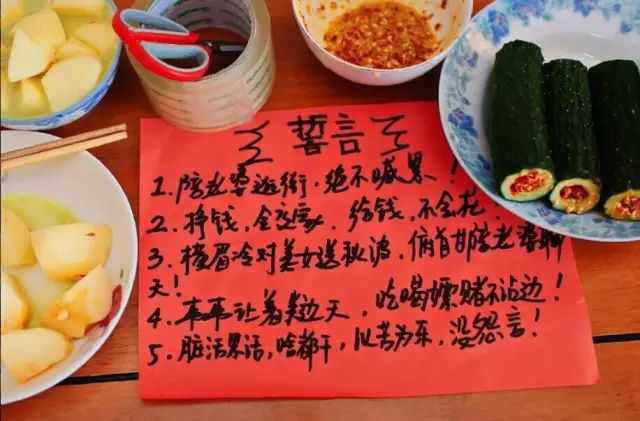 誓言
1. 陪老婆逛街，绝不喊累！
2. 挣钱，全交，给钱，不会花.
3. 横眉冷对美女送秋波，俯首甘陪老婆聊
天！
4. 让着边天，吃喝嫖赌不沾边！
5. 脏活累活，啥都干，以苦为乐，没怨言！